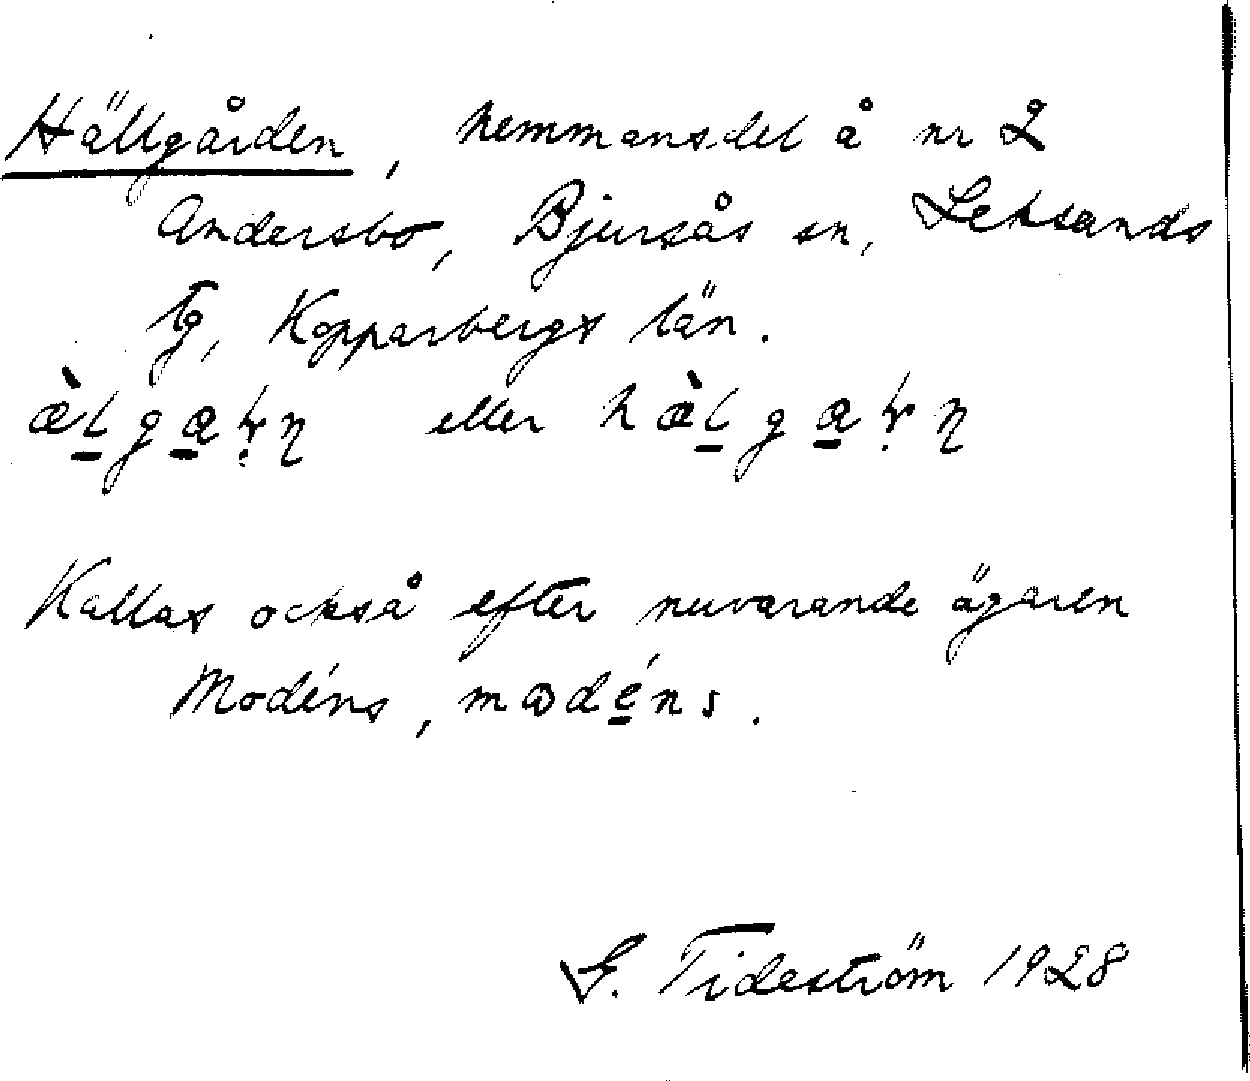 Hällgården, hemmansdel å nr 2
Andersbo, Bjursås sn, Leksands
tg, Kopparbergs län.
eller
Kallas också efter nuvarande ägaren
Modéns, modéns.
G. Tideström 1928